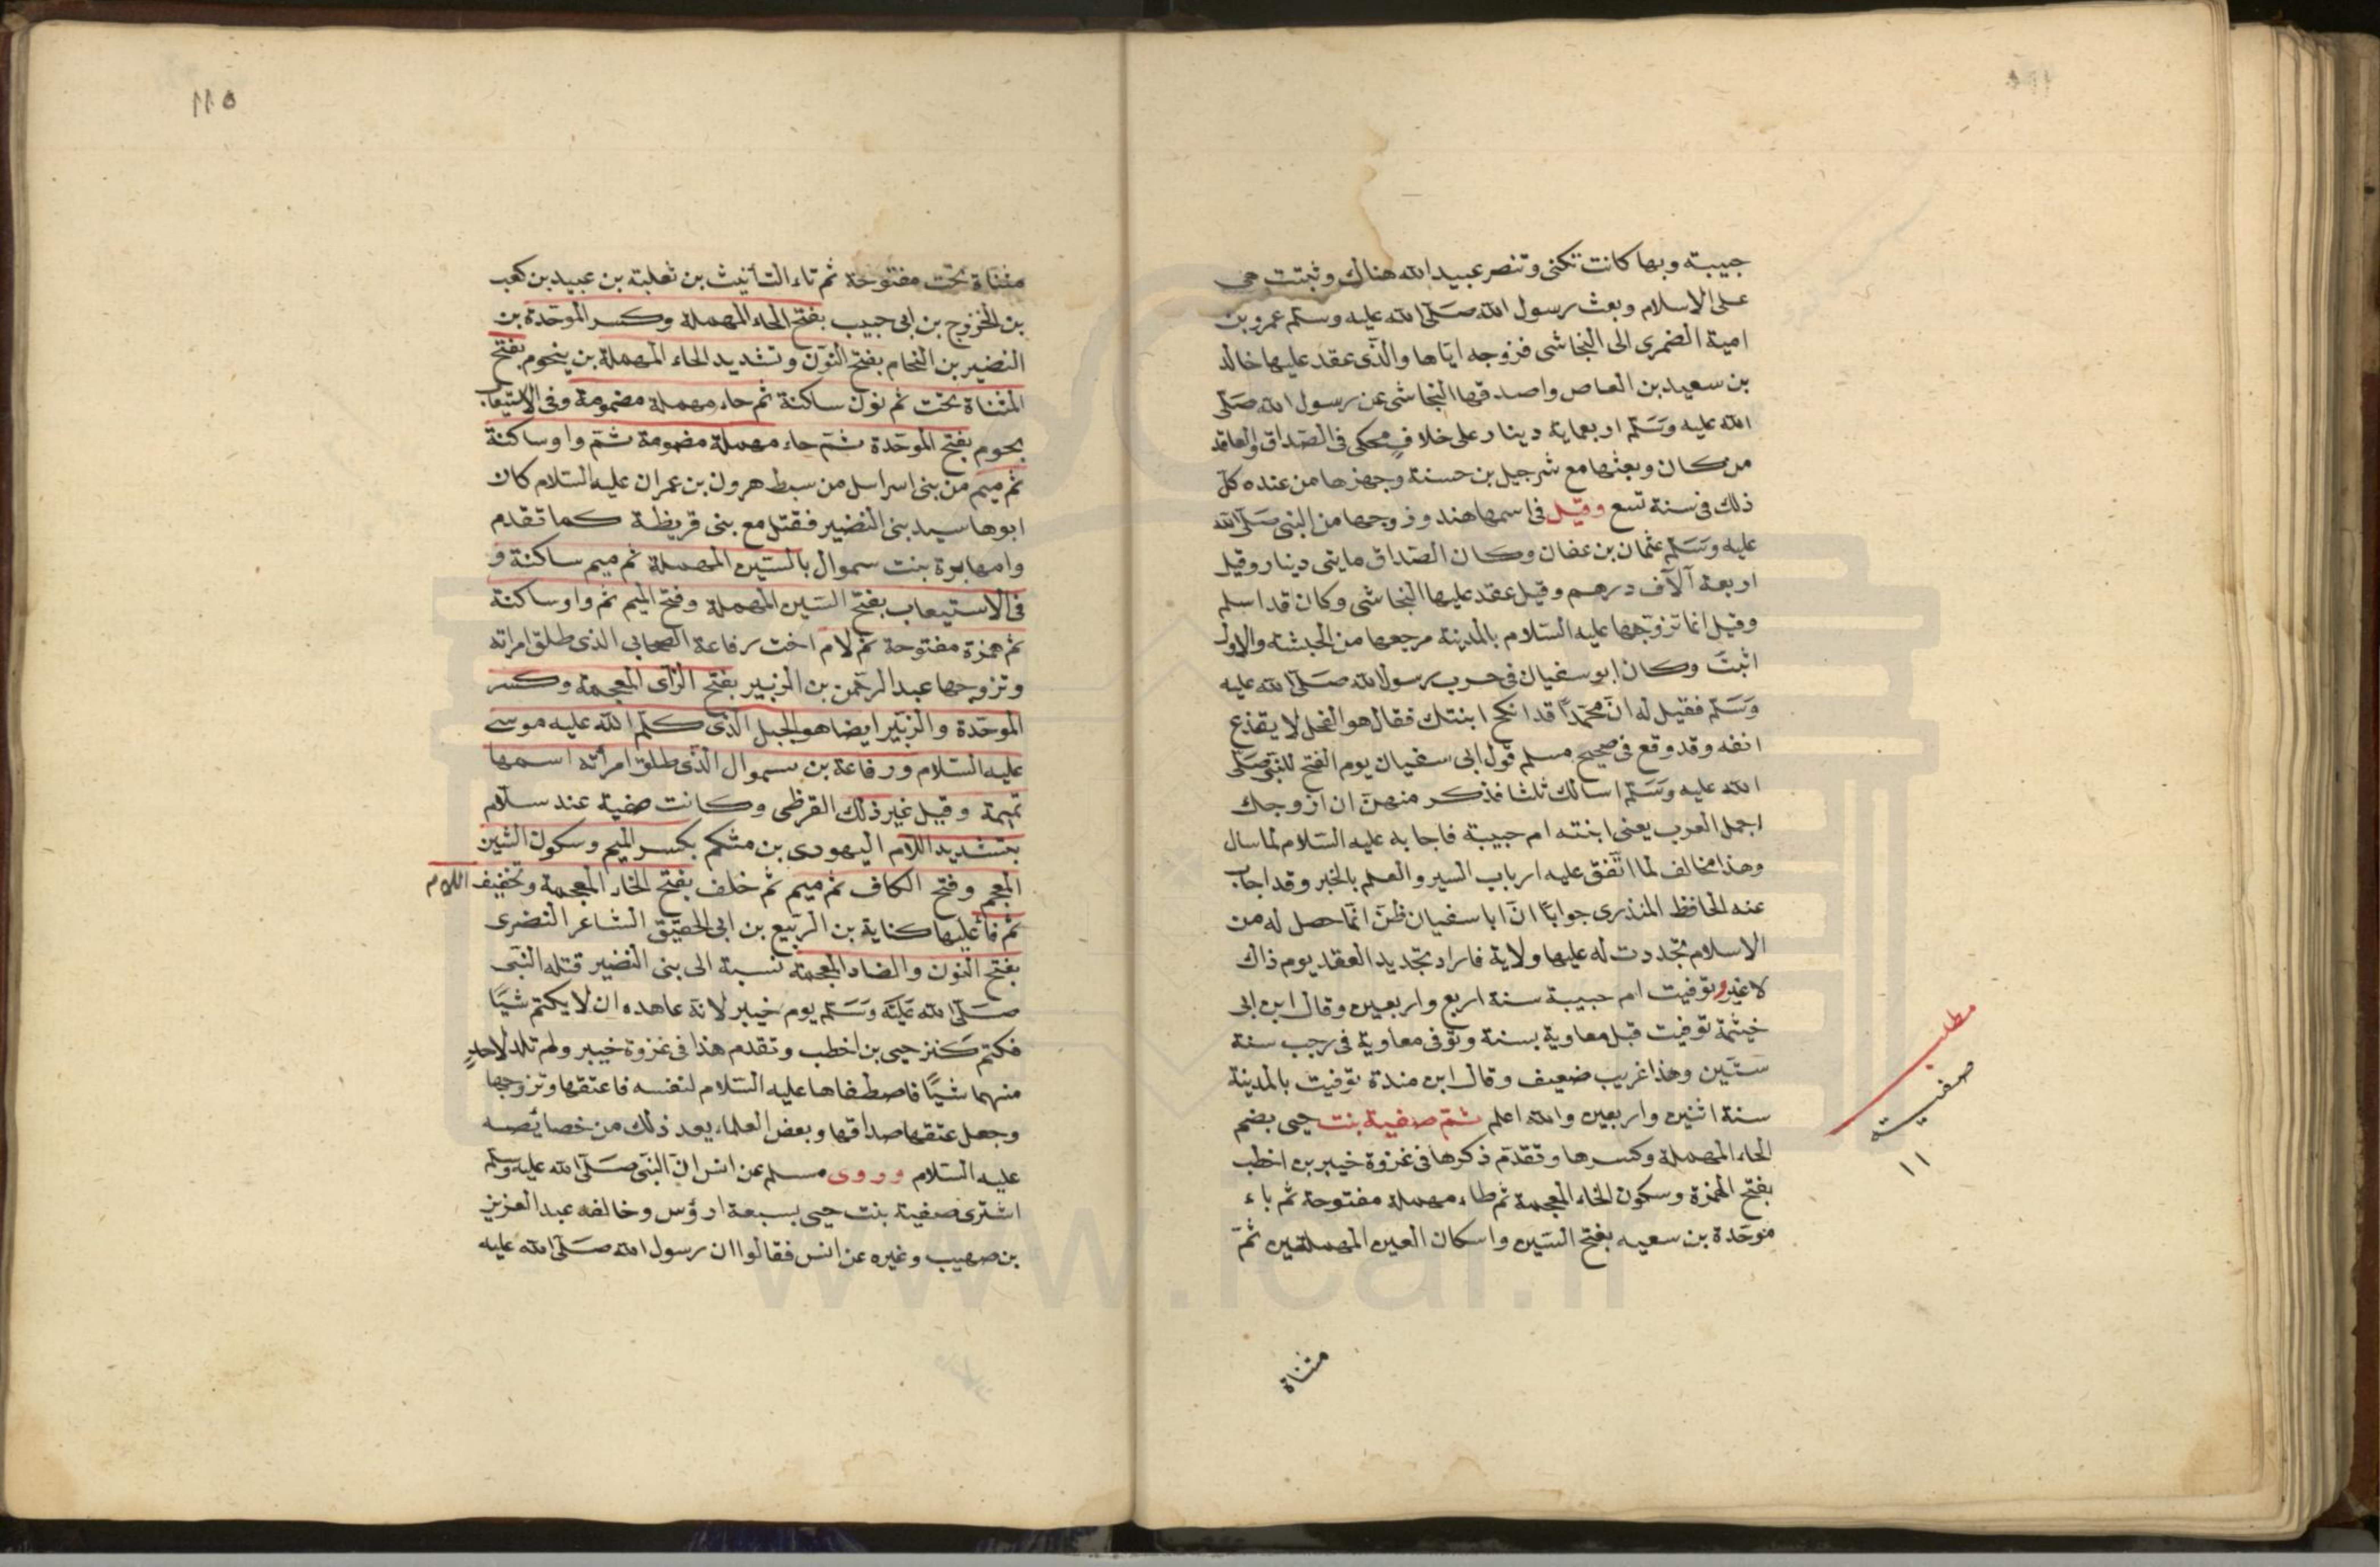 حبيبة وبها كانت تكنى وتنصر عبيد الله هناك وثبتت هى
على الاسلام وبعث رسول الله صلى الله عليه وسلم عمرو بن
امية الضمرى الى النجاشى فزوجه اياها والذى عقد عليها خالد
بن سعيد بن العاص واصدقها النجاشى عن رسول الله صلى
الله عليه وسلم اربعماية دينار على خلاف محكى فى الصداق والعاقد
من كان وبعثها مع شرحبيل بن حسنة وجهزها من عنده كل
ذلك فى سنة تسع وقيل فى اسمها هند وزوجها من النبى صلى الله
عليه وسلم عثمان بن عفان وكان الصداق مايتى دينار وقيل
اربعة آلاف درهم وقيل عقد عليها النجاشى وكان قد اسلم
وقيل انما تزوجها عليه السلام بالمدينة مرجعها من الحبشه والاول
اثبت وكان ابو سفيان فى حرب رسول الله صلى الله عليه
وسلم فقيل له ان محمدا قد انكح ابنتك فقال هو الفحل لا يقذع
انفه وقد وقع فى صحيح مسلم قول ابى سفيان يوم الفتح للنبى صلى
الله عليه وسلم اسالك ثلثا فذكر منهن ان ازوجك
اجمل العرب يعنى ابنته ام حبيبة فاجابه عليه السلام لما سال
وهذا مخالف لما اتفق عليه ارباب السير والعلم بالخبر وقد اجاب
عنه الحافظ المنذرى جوابا ان ابا سفيان ظن انما حصل له من
الاسلام تجددت له عليها ولاية فاراد تجديد العقد يوم ذاك
لا غير وتوفيت ام حبيبة سنة اربع واربعين وقال ابن ابى
خيثمة توفيت قبل معاوية بسنة وتوفى معاوية فى رجب سنة
ستين وهذا غريب ضعيف وقال ابن مندة توفيت بالمدينة
سنة اثنين واربعين والله اعلم ثم صفية بنت حيى بضم
الحاء المهملة وكسرها وتقدم ذكرها فى غزوة خيبر بن اخطب
بفتح الهمزة وسكون الخاء المعجمة ثم طاء مهملة مفتوحة ثم باء
موحدة بن سعيه بفتح السين واسكان العين المهملتين ثم
مثناة
مطلب
صفية
١١
١١٥
مثناة تحت مفتوحة ثم تاء التأنيث بن ثعلبة بن عبيد بن كعب
بن الخزرج بن ابى حبيب بفتح الحاء المهملة وكسر الموحدة بن
النضير بن النحام بفتح النون وتشديد الحاء المهملة بن ينحوم بفتح
المثناة تحت ثم نون ساكنة ثم حاء مهملة مضمومة وفى الاستيعاب
بحوم بفتح الموحدة ثم حاء مهملة مضمومة ثم واو ساكنة
ثم ميم من بنى اسراىل من سبط هرون بن عمران عليه السلام كان
ابوها سيد بنى النضير فقتل مع بنى قريظة كما تقدم
وامها برة بنت سموال بالسين المهملة ثم ميم ساكنة و
فى الاستيعاب بفتح السين المهملة وفتح الميم ثم واو ساكنة
ثم همزة مفتوحة ثم لام اخت رفاعة الصحابى الذى طلق امراته
وتزوجها عبد الرحمن بن الزبير بفتح الزاى المعجمة وكسر
الموحدة والزبير ايضا هو الجبل الذى كلم الله عليه موسى
عليه السلام ورفاعة بن سموال الذى طلق امرأته اسمها
تميمة وقيل غير ذلك القرظى وكانت صفية عند سلام
بتشديد اللام اليهودى بن مشكم بكسر الميم وسكون الشين
المعجم وفتح الكاف ثم ميم ثم خلف بفتح الخاء المعجمة وتخفيف اللام
ثم فاء عليها كناية بن الربيع بن ابى الحقيق الشاعر النضرى
بفتح النون والضاد المعجمة نسبة الى بنى النضير قتله النبى
صلى الله عليه وسلم يوم خيبر لانه عاهده ان لا يكتم شيًا
فكتم كنز حيى بن اخطب وتقدم هذا فى غزوة خيبر ولم تلد لاحد
منهما شيًا فاصطفاها عليه السلام لنفسه فاعتقها وتزوجها
وجعل عتقها صداقها وبعض العلماء يعد ذلك من خصائصه
عليه السلام وروى مسلم عن انس ان النبى صلى الله عليه وسلم
اشترى صفية بنت حيى بسبعة ارؤس وخالفه عبد العزيز
بن صهيب وغيره عن انس فقالوا ان رسول الله صلى الله عليه